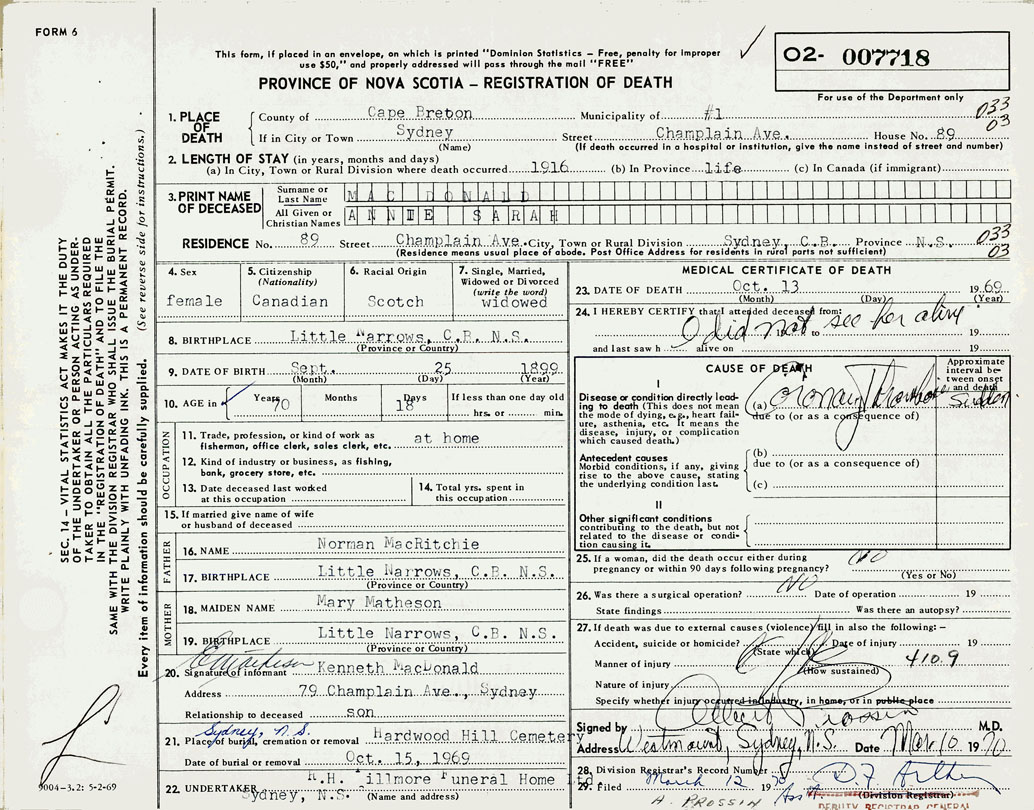 FORM 6
This form, if placed in an envelope, on which is printed "Dominion Statistics – Free, penalty for improper
use $50," and properly addressed will pass through the mail "FREE"
PROVINCE OF NOVA SCOTIA – REGISTRATION OF DEATH
02- 007718
For use of the Department only
1. PLACE OF DEATH
County of Cape Breton Municipality of #1 033
If in City or Town Sydney Street Champlain Ave. House No. 89 03
(Name) (If death occurred in a hospital or institution, give the name instead of street and number)
2. LENGTH OF STAY (in years, months and days)
(a) In City, Town or Rural Division where death occurred 1916 (b) In Province life (c) In Canada (if immigrant)
3. PRINT NAME OF DECEASED
Surname or Last Name MAC DONALD
All Given or Christian Names ANNIE SARAH
RESIDENCE No. 89 Street Champlain Ave. City, Town or Rural Division Sydney, C.B. Province N.S. 033
(Residence means usual place of abode. Post Office Address for residents in rural parts not sufficient) 03
4. Sex
female
5. Citizenship
(Nationality)
Canadian
6. Racial Origin
Scotch
7. Single, Married,
Widowed or Divorced
(write the word)
widowed
8. BIRTHPLACE Little Narrows, C.B. N.S.
(Province or Country)
9. DATE OF BIRTH Sept. 25 1899
(Month) (Day) (Year)
10. AGE in Years Months Days If less than one day old
70 18 hrs. or min.
OCCUPATION
11. Trade, profession, or kind of work as at home
fisherman, office clerk, sales clerk, etc.
12. Kind of industry or business, as fishing,
bank, grocery store, etc.
13. Date deceased last worked
at this occupation
14. Total yrs. spent in
this occupation
15. If married give name of wife
or husband of deceased
FATHER
16. NAME Norman MacRitchie
17. BIRTHPLACE Little Narrows, C.B. N.S.
(Province or Country)
MOTHER
18. MAIDEN NAME Mary Matheson
19. BIRTHPLACE Little Narrows, C.B. N.S.
(Province or Country)
20. Signature of informant Kenneth MacDonald
Address 79 Champlain Ave., Sydney
Relationship to deceased son
Sydney, N.S.
21. Place of burial, cremation or removal Hardwood Hill Cemetery
Date of burial or removal Oct. 15, 1969
22. UNDERTAKER Funeral Home Ltd
Sydney, N.S. (Name and address)
MEDICAL CERTIFICATE OF DEATH
23. DATE OF DEATH Oct. 13 1969
(Month) (Day) (Year)
24. I HEREBY CERTIFY that I attended deceased from:
I did not see her alive
to 19
and last saw h alive on 19
CAUSE OF DEATH
Approximate
interval be-
tween onset
and death
I
Disease or condition directly lead-
ing to death (This does not
mean the mode of dying, e.g., heart fail-
ure, asthenia, etc. It means the
disease, injury, or complication
which caused death.)
(a) Coronary Thrombosis Sudden
due to (or as a consequence of)
Antecedent causes
Morbid conditions, if any, giving
rise to the above cause, stating
the underlying condition last.
(b)
due to (or as a consequence of)
(c)
II
Other significant conditions
contributing to the death, but not
related to the disease or condi-
tion causing it.
25. If a woman, did the death occur either during
pregnancy or within 90 days following pregnancy? No
(Yes or No)
26. Was there a surgical operation? No Date of operation 19
State findings Was there an autopsy?
27. If death was due to external causes (violence) fill in also the following: –
Accident, suicide or homicide? Date of injury 19
(State which)
Manner of injury 410.9
(How sustained)
Nature of injury
Specify whether injury occurred in industry, in home, or in public place
Signed by M.D.
Address Westmount, Sydney, N.S. Date Mar. 10 1970
28. Division Registrar's Record Number
29. Filed March 12 1970
Ass't (Division Registrar)
A. PROSSIN
DEPUTY REGISTRAR GENERAL
SEC. 14 – VITAL STATISTICS ACT MAKES IT THE DUTY
OF THE UNDERTAKER OR PERSON ACTING AS UNDER-
TAKER TO OBTAIN ALL THE PARTICULARS REQUIRED
IN THE "REGISTRATION OF DEATH" AND TO FILE THE
SAME WITH THE DIVISION REGISTRAR WHO SHALL ISSUE THE BURIAL PERMIT.
WRITE PLAINLY WITH UNFADING INK. THIS IS A PERMANENT RECORD.
Every item of information should be carefully supplied. (See reverse side for instructions.)
9004–3.2: 5-2-69